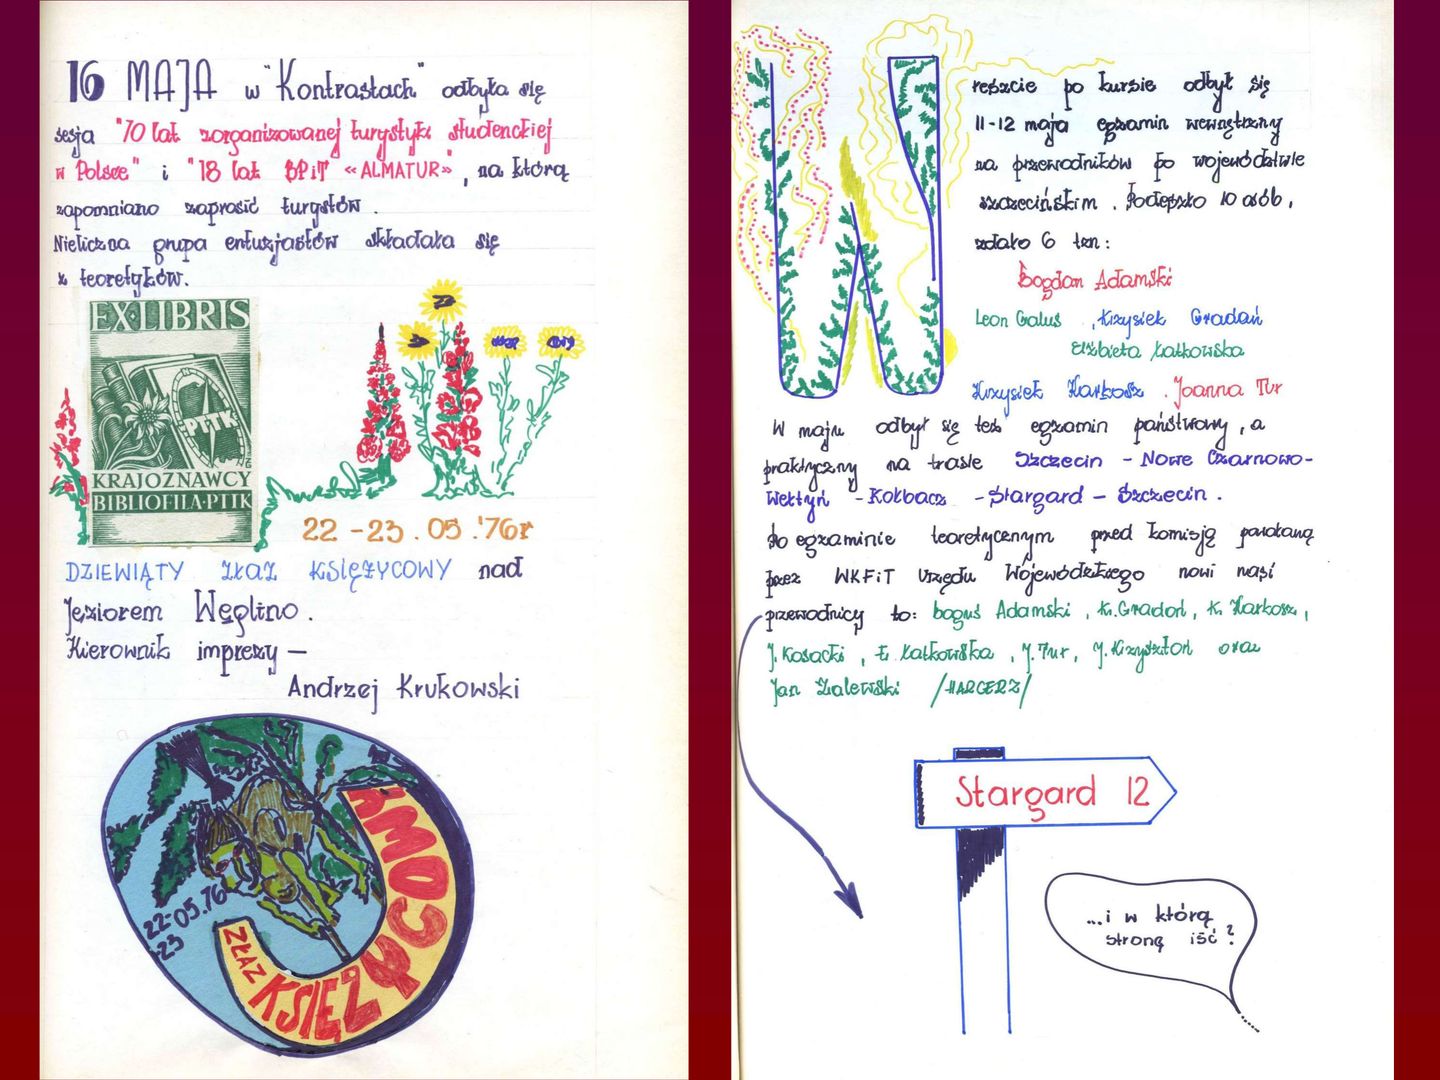 16 MAJA w "Kontrastach" odbyła się
sesja "70 lat zorganizowanej turystyki studenckiej
w Polsce" i "18 lat BPiT «ALMATUR»", na którą
zapomniano zaprosić turystów.
Nieliczna grupa entuzjastów składała się
z teoretyków.
EX·LIBRIS
PTTK
KRAJOZNAWCY
BIBLIOFILA·PTTK
22-23.05.'76r
DZIEWIĄTY ZŁAZ KSIĘŻYCOWY nad
Jeziorem Węglino.
Kierownik imprezy –
Andrzej Krukowski
22-05.76
23
ZŁAZ KSIĘŻYCOWY
W
reszcie po kursie odbył się
11-12 maja egzamin wewnętrzny
na przewodników po województwie
szczecińskim. Podeszło 10 osób,
zdało 6 ten:
Bogdan Adamski
Leon Galus, Krzysiek Gradań
Elżbieta Kałkowska
Krzysiek Harkosz. Joanna Tur
W maju odbył się też egzamin państwowy, a
praktyczny na trasie Szczecin - Nowe Czarnowo-
Wełtyń - Kołbacz - Stargard - Szczecin.
Po egzaminie teoretycznym przed komisją powołaną
przez WKFiT Urzędu Wojewódzkiego nowi nasi
przewodnicy to: boguś Adamski, K. Gradoń, K. Harkosz,
J. Kosacki, E. Kałkowska, J. Tur, J. Krzysztoń oraz
Jan Zalewski /HARCERZ/
Stargard 12
...i w którą
stronę iść?